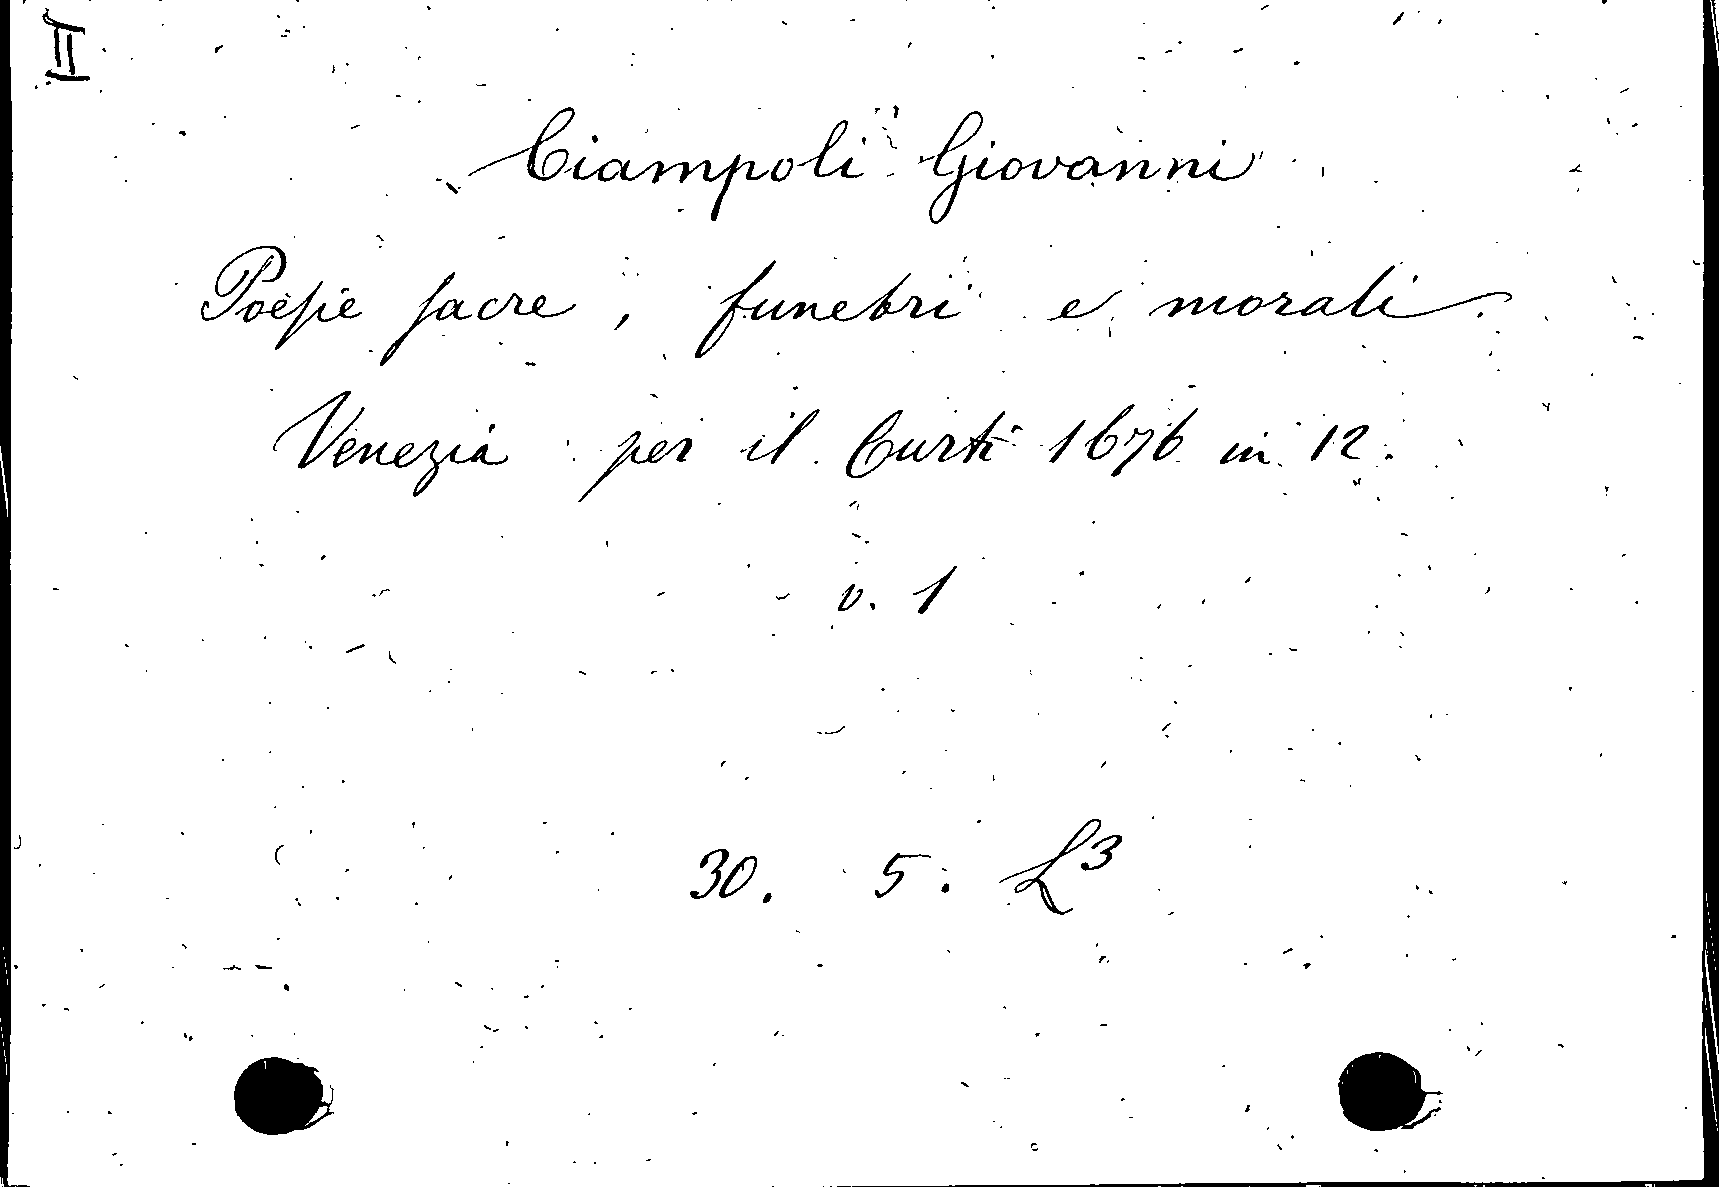 II
Ciampoli Giovanni
Poesie sacre, funebri e morali.
Venezia per il Curti 1676 in 12.
v. 1
30. 5. L³